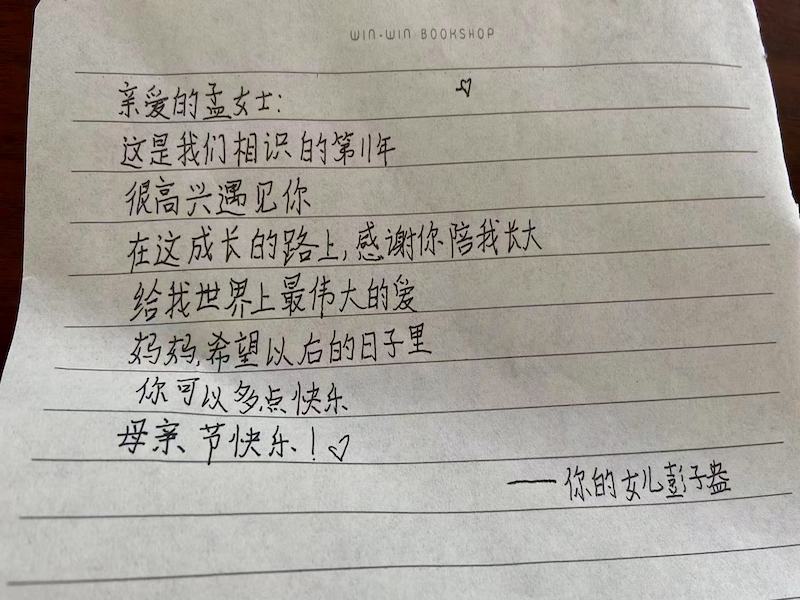 WIN-WIN BOOKSHOP
亲爱的孟女士:
这是我们相识的第11年
很高兴遇见你
在这成长的路上,感谢你陪我长大
给我世界上最伟大的爱
妈妈,希望以右的日子里
你可以多点快乐
母亲节快乐!♡
——你的女儿彭子盎